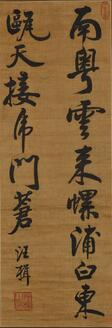 南粤雲来螺浦白東
甌天接虎門蒼
汪楫